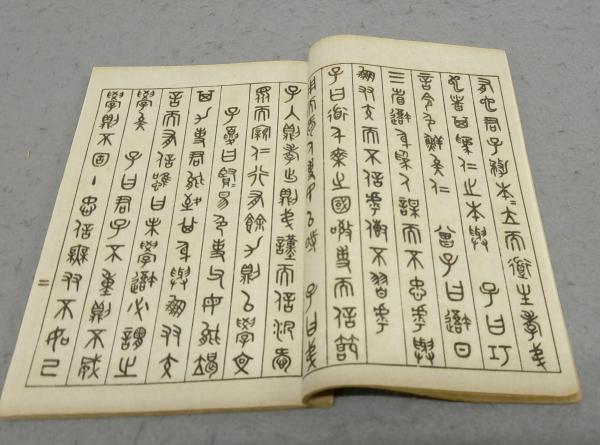 有也君子務本〻立而道生孝弟
也者其爲仁之本與　子曰巧
言令色鮮矣仁　曾子曰吾日
三省吾身爲人謀而不忠乎與
朋友交而不信乎傳不習乎
子曰道千乘之國敬事而信節
用而愛人使民以時　子曰弟
子入則孝出則弟謹而信汎愛
眾而親仁行有餘力則以學文
子夏曰賢〻易色事父母能竭
其力事君能致其身與朋友交
言而有信雖曰未學吾必謂之
學矣　子曰君子不重則不威
學則不固主忠信無友不如己
二